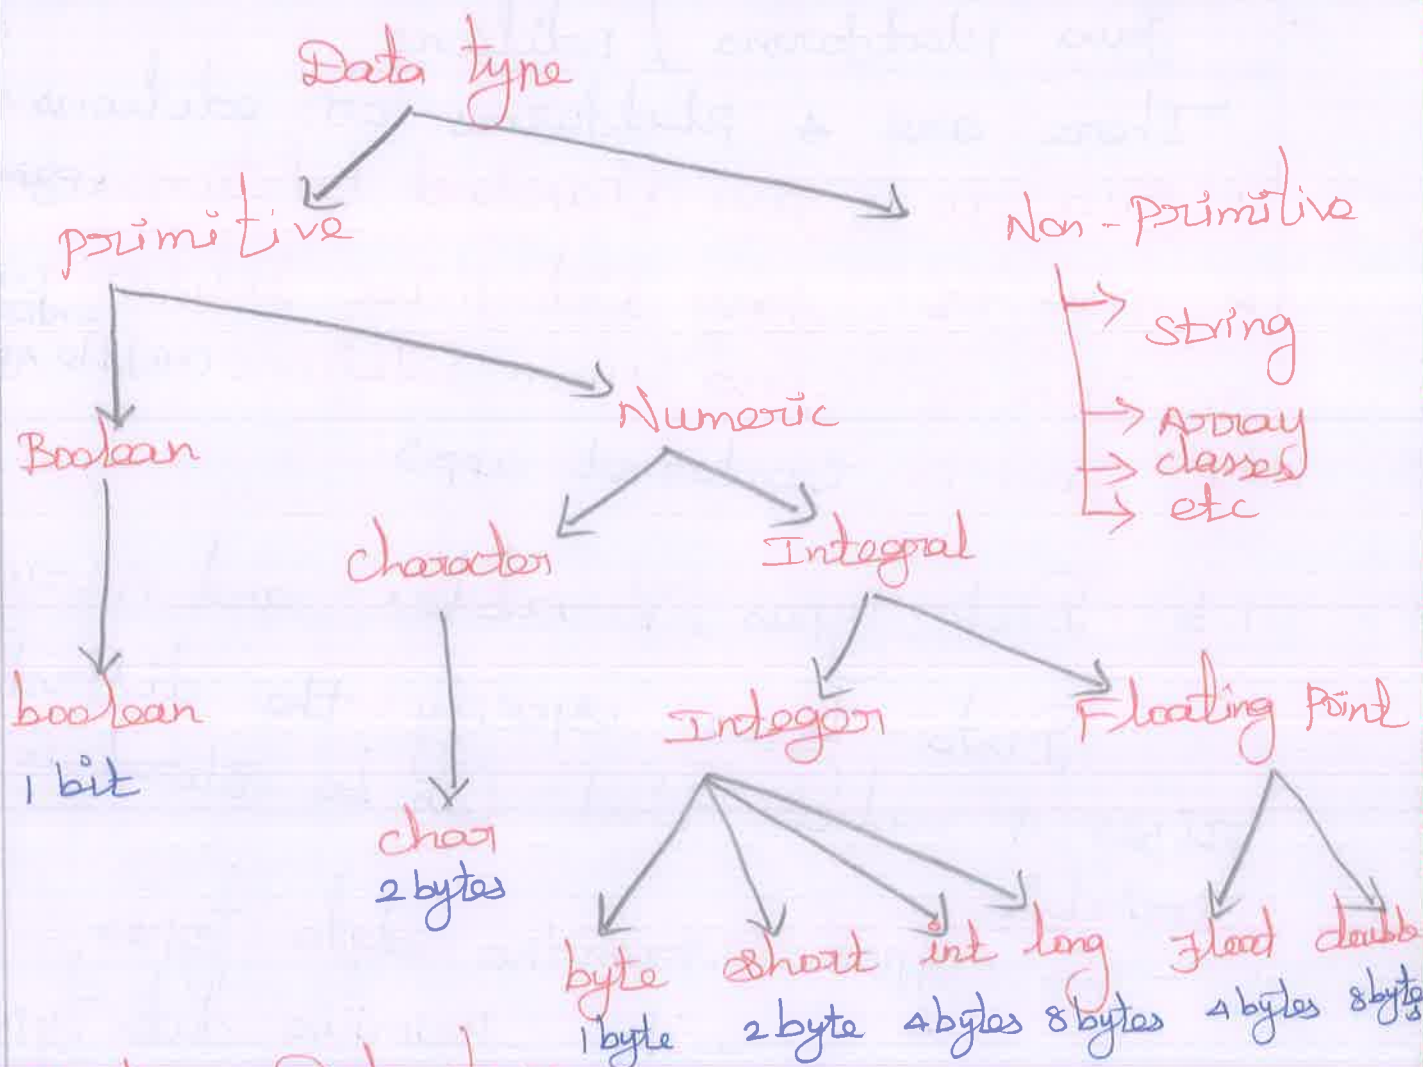 Data type
primitive
Non-Primitive
String
Array
classes
etc
Numeric
Boolean
character
Integral
boolean
1 bit
Integer
Floating Point
char
2 bytes
byte
short
int
long
Float
double
1 byte
2 byte
4 bytes
8 bytes
4 bytes
8 bytes